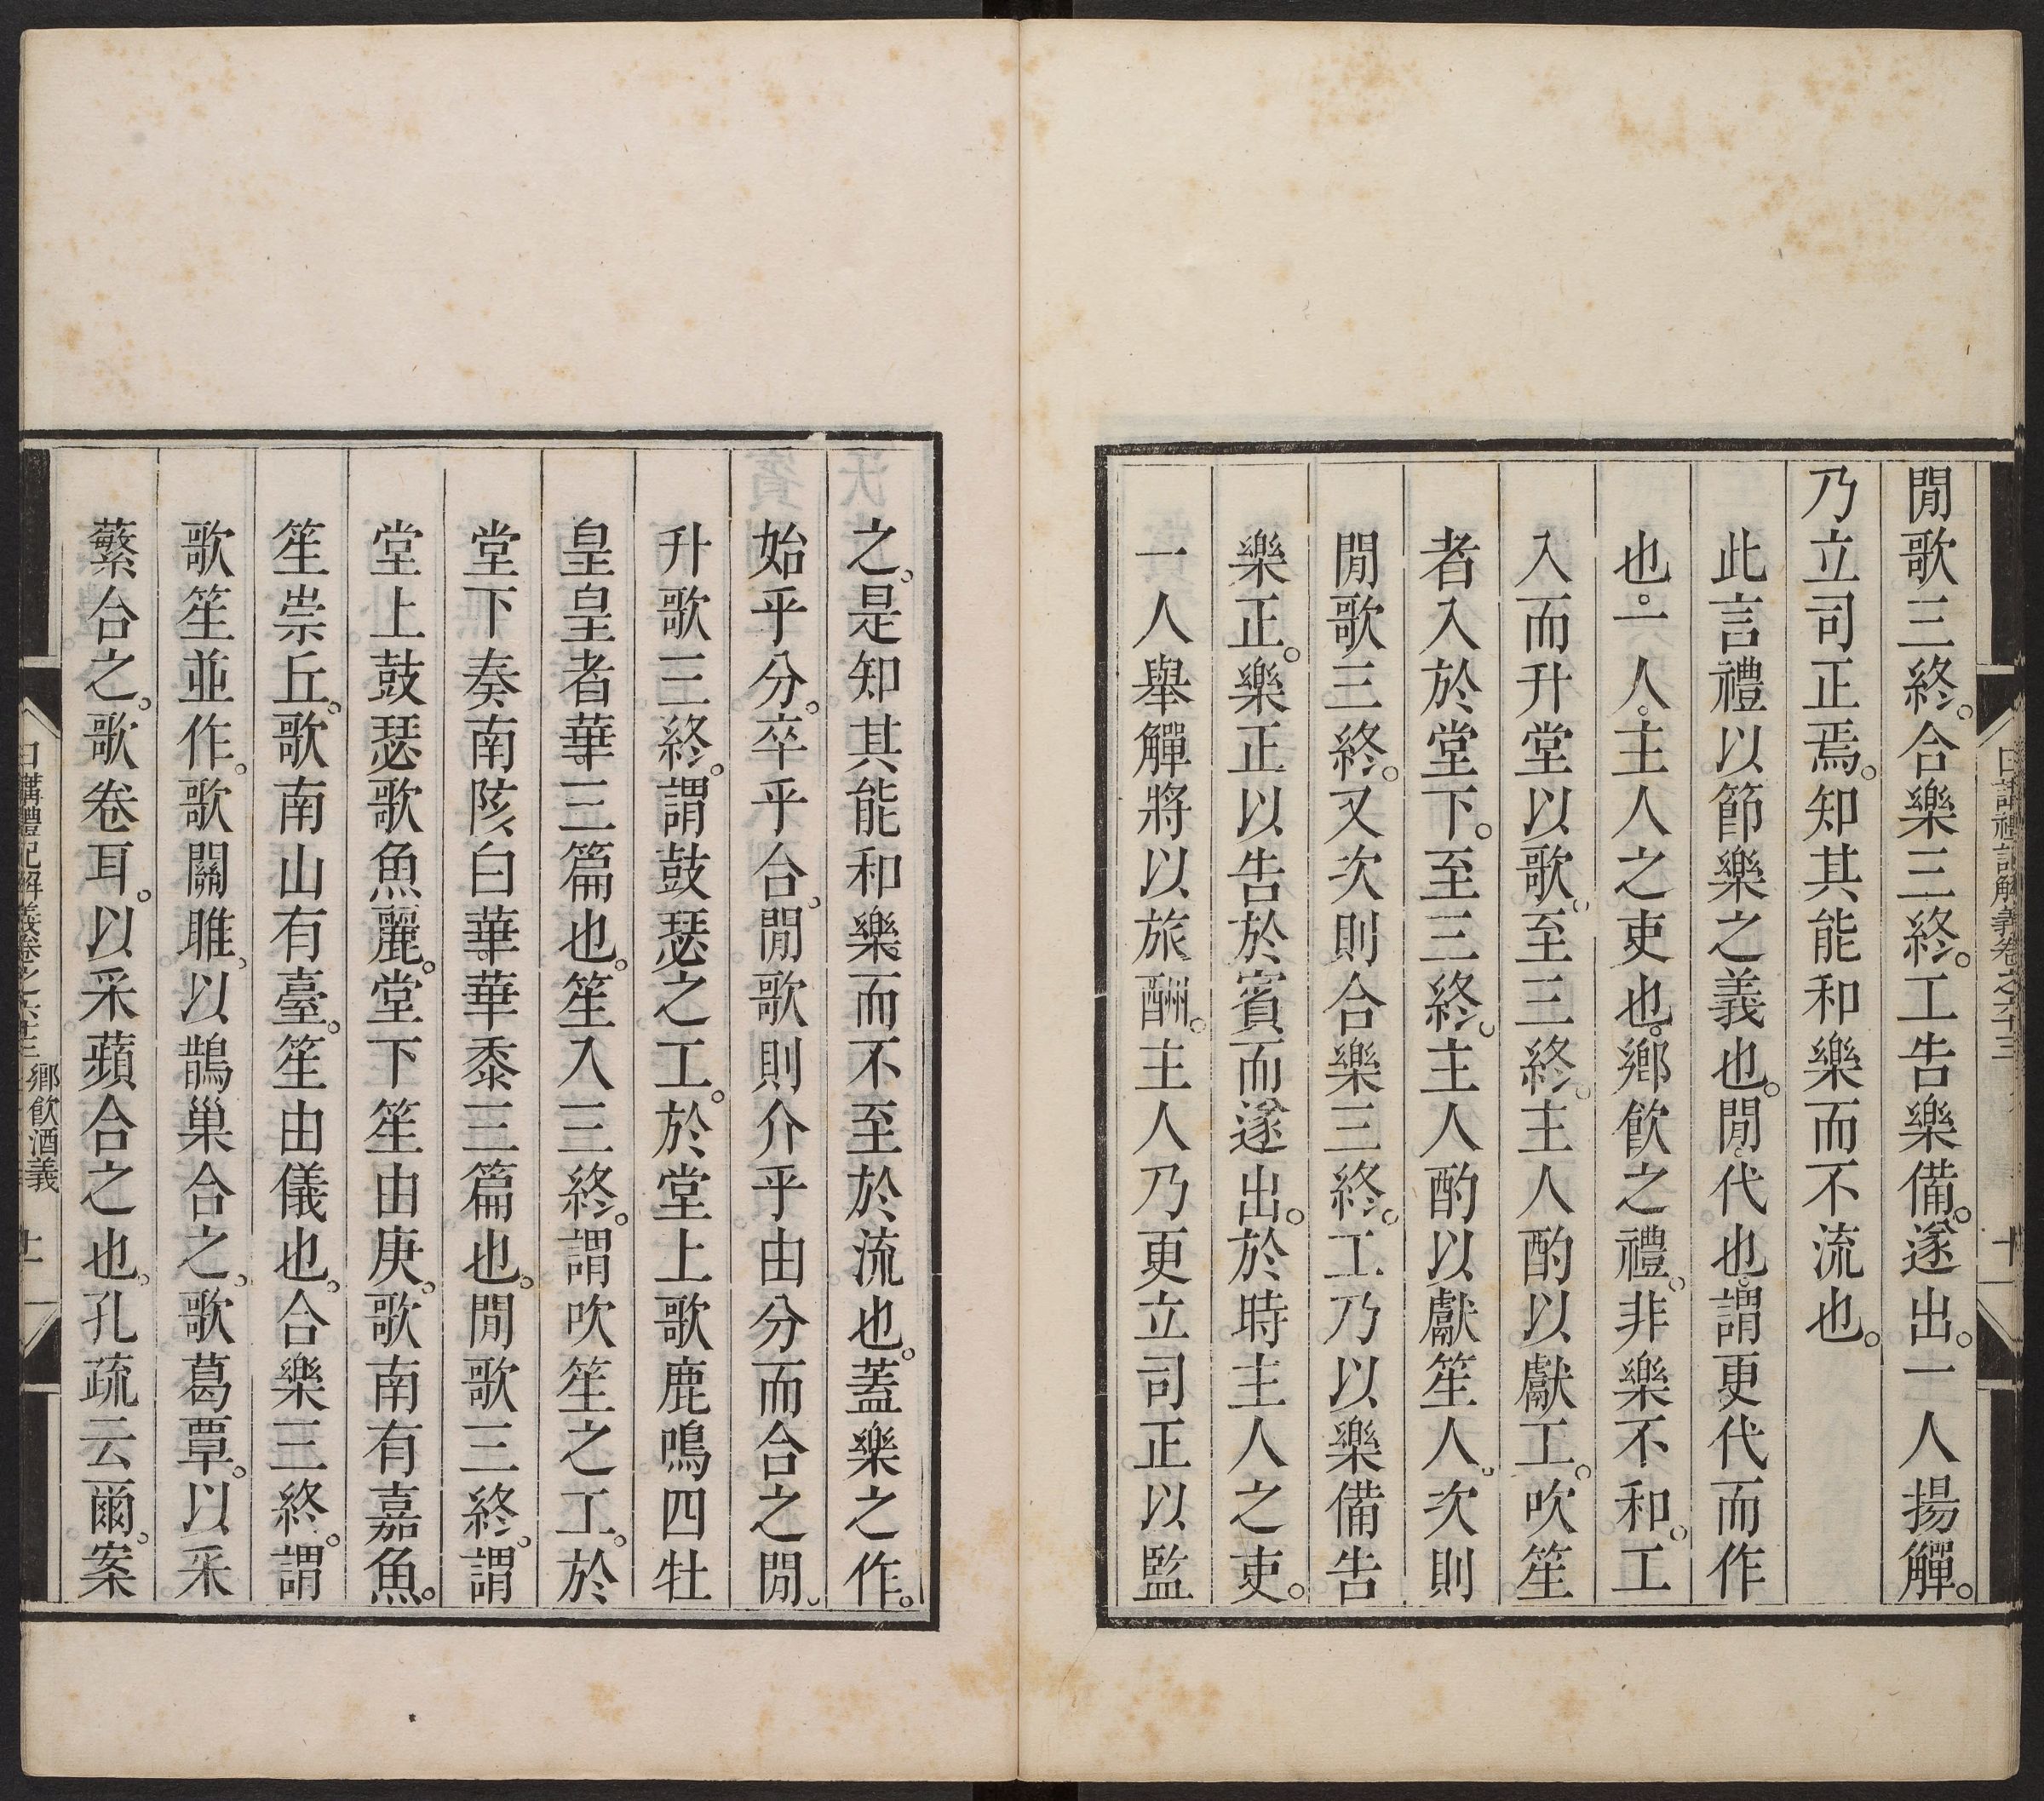 日講禮記解義卷之六十三
十
閒歌三終。合樂三終。工告樂備。遂出。一人揚觶。
乃立司正焉。知其能和樂而不流也。
此言禮以節樂之義也。閒。代也。謂更代而作
也。一人。主人之吏也。鄉飲之禮。非樂不和。工
入而升堂以歌。至三終。主人酌以獻工。吹笙
者入於堂下。至三終。主人酌以獻笙人。次則
閒歌三終。又次則合樂三終。工乃以樂備告
樂正。樂正以告於賓而遂出。於時主人之吏。
一人舉觶將以旅酬。主人乃更立司正以監
之。是知其能和樂而不至於流也。蓋樂之作。
始乎分。卒乎合。閒歌則介乎由分而合之閒。
升歌三終。謂鼓瑟之工。於堂上歌鹿鳴四牡
皇皇者華。三篇也。笙入三終。謂吹笙之工。於
堂下奏南陔白華。華黍三篇也。閒歌三終。謂
堂上鼓瑟歌魚麗。堂下笙由庚。歌南有嘉魚。
笙崇丘。歌南山有臺。笙由儀也。合樂三終。謂
歌笙並作。歌關雎。以鵲巢合之。歌葛覃。以采
蘩合之。歌卷耳。以采蘋合之也。孔疏云爾。案
日講禮記解義卷之六十三 鄉飲酒義
十一